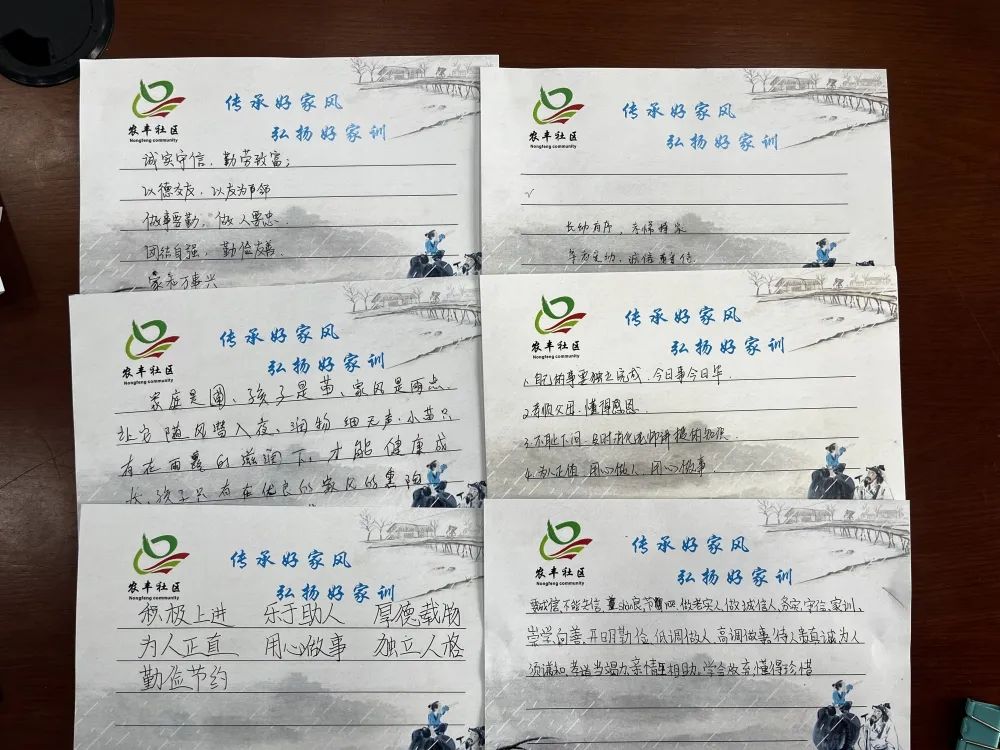 农丰社区
Nongfeng community
传承好家风
弘扬好家训
诚实守信，勤劳致富；
以德交友，以友为
做事要勤，做人要忠.
团结自强，勤俭友善.
家和万事兴
农丰社区
Nongfeng community
传承好家风
弘扬好家训
√
长幼有序，孝悌
诚信
农丰社区
Nongfeng community
传承好家风
弘扬好家训
家庭是圃、孩子是苗、家风是雨点.
让它随风潜入夜、润物细无声.小苗只
有在雨露的滋润下，才能健康成
长、孩子只有在优良的家风的熏陶
农丰社区
Nongfeng community
传承好家风
弘扬好家训
1.自己的事要独立完成，今日事今日毕.
2.孝顺父母，懂得感恩.
3.不耻下问，及时消化老师讲授的知识
4.为人正值，用心做人，用心做事.
农丰社区
Nongfeng community
传承好家风
弘扬好家训
积极上进 乐于助人 厚德载物
为人正直 用心做事 独立人格
勤俭节约
农丰社区
Nongfeng community
传承好家风
弘扬好家训
诚信不能失信 做老实人，做诚信人，务实，守信，家训，
崇学向善，开明勤俭，低调做人，高调做事，待人贵真诚为人
须谦和，孝道当竭力，亲情互相助，学会放弃，懂得珍惜